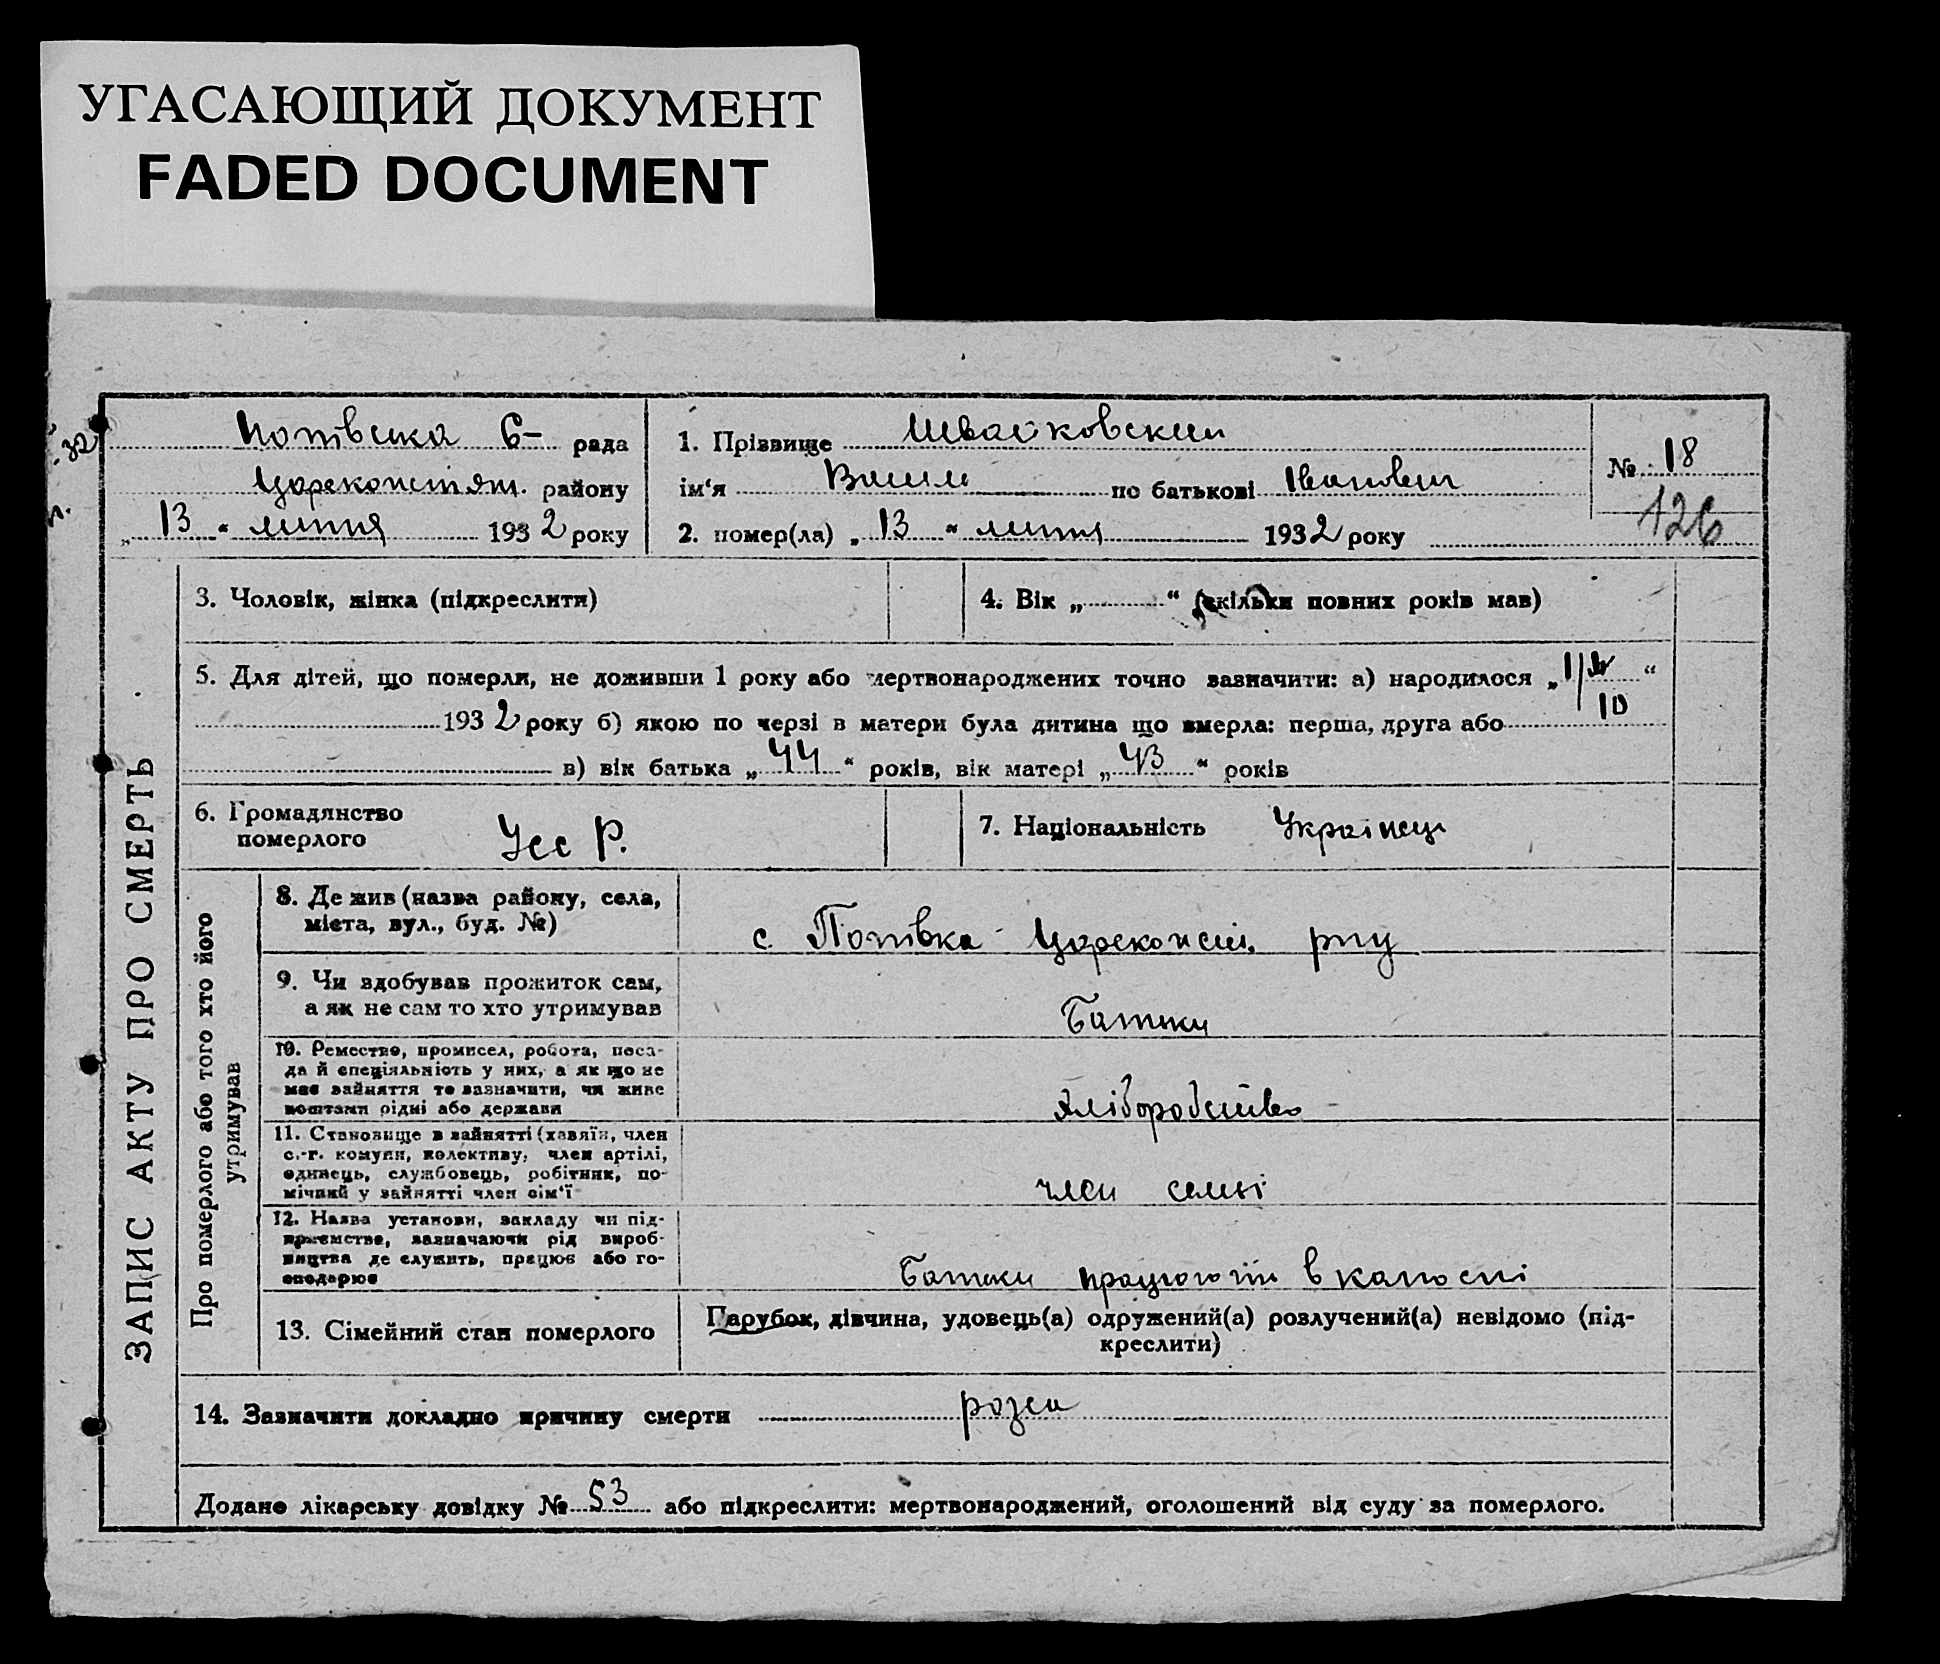 УГАСАЮЩИЙ ДОКУМЕНТ
FADED DOCUMENT
Попівська С- рада
Царекопстянт. району
„13“ липня 1932 року
1. Прізвище Швайковский
ім'я по батькові Іванович
2. помер(ла) „13“ липня 1932 року
№ 18
126
3. Чоловік, жінка (підкреслити)
4. Вік „ “ (скільки повних років мав)
5. Для дітей, що померли, не доживши 1 року або мертвонароджених точно зазначити: а) народилося „1/ “
1932 року б) якою по черзі в матери була дитина що вмерла: перша, друга або 10
в) вік батька „44“ років, вік матері „43“ років
6. Громадянство
померлого
УССР.
7. Національність Українець
ЗАПИС АКТУ ПРО СМЕРТЬ
Про померлого або того хто його
утримував
8. Де жив (назва району, села,
міста, вул., буд. №)
с. Попівка Царекопст. рну
9. Чи здобував прожиток сам,
а як не сам то хто утримував
Батьки
10. Ремество, промисел, робота, поса-
да й спеціяльність у них, а як що не
має зайняття то зазначити, чи живе
коштами рідні або держави
Хліборобство
11. Становище в зайнятті (хазяїн, член
с.-г. комуни, колективу, член артілі,
одинець, службовець, робітник, по-
мічний у зайнятті член сім'ї
член семьі
12. Назва установи, закладу чи під-
приємства, зазначаючи рід вироб-
ництва де служить, працює або го-
сподарює
Батьки працюють в калоспі
13. Сімейний стан померлого
Парубок, дівчина, удовець(а) одружений(а) розлучений(а) невідомо (під-
креслити)
14. Зазначити докладно причину смерти рожа
Додано лікарську довідку № 53 або підкреслити: мертвонароджений, оголошений від суду за померлого.